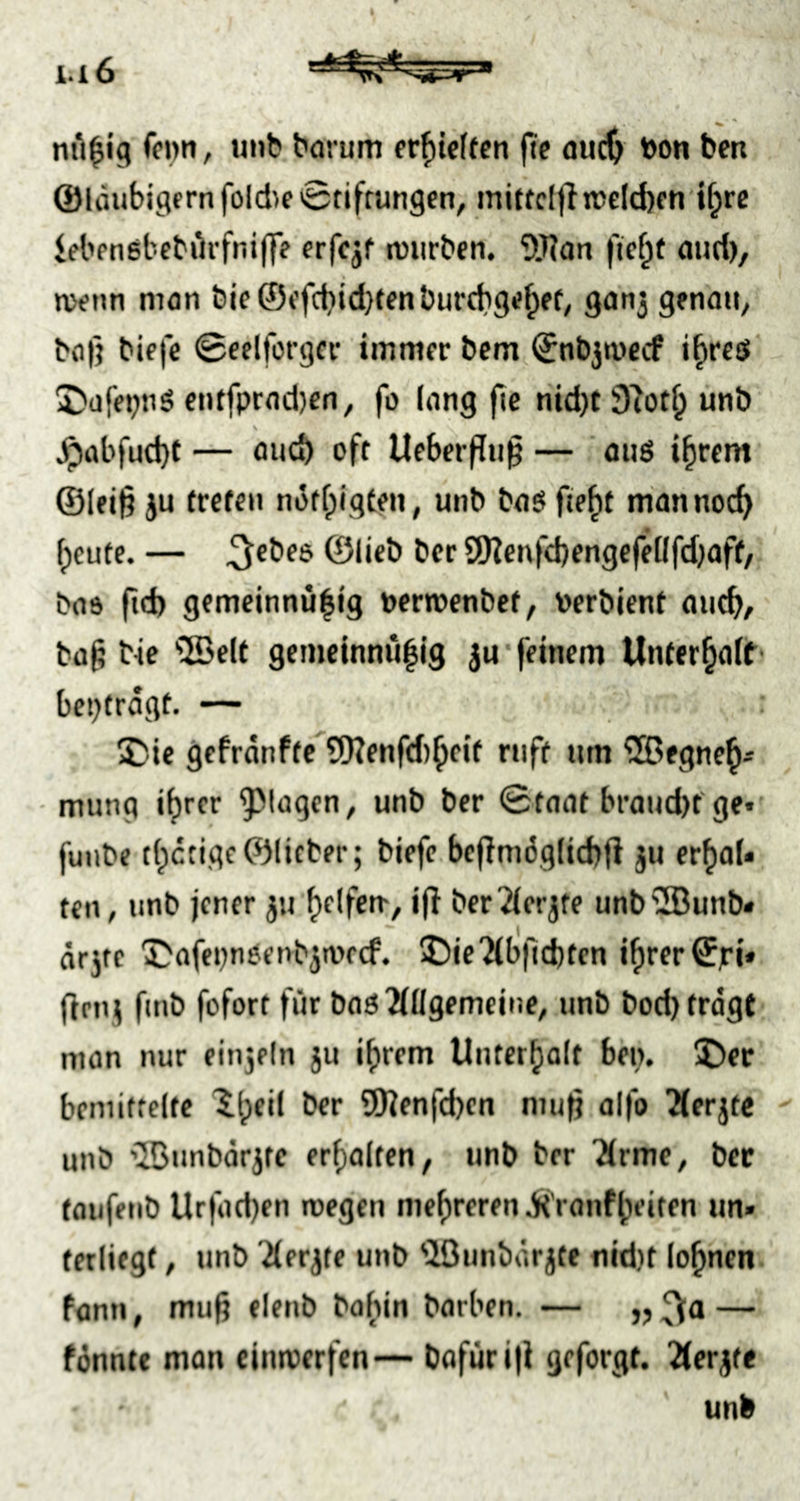 116
nützig seyn, und darum erhielten sie auch von den
Gläubigern solche Stiftungen, mittelst welchen ihre
Lebensbedürfnisse ersezt wurden. Man sieht auch,
wenn man die Geschichten durchgehet, ganz genau,
daß diese Seelsorger immer dem Endzweck ihres
Daseyns entsprachen, so lang sie nicht Noth und
Habsucht — auch oft Ueberfluß — aus ihrem
Gleiß zu treten nöthigten, und das sieht man noch
heute. — Jedes Glied der Menschengesellschaft,
das sich gemeinnützig verwendet, verdient auch,
daß die Welt gemeinnützig zu seinem Unterhalt
beyträgt. —
Die gekränkte Menschheit ruft um Wegneh-
mung ihrer Plagen, und der Staat braucht ge-
sunde thätige Glieder; diese bestmöglichst zu erhal-
ten, und jener zu helfen, ist der Aerzte und Wund-
ärzte Daseynsendzweck. Die Absichten ihrer Exi-
stenz sind sofort für das Allgemeine, und doch trägt
man nur einzeln zu ihrem Unterhalt bey. Der
bemittelte Theil der Menschen muß also Aerzte
und Wundärzte erhalten, und der Arme, der
tausend Ursachen wegen mehreren Krankheiten un-
terliegt, und Aerzte und Wundärzte nicht lohnen
kann, muß elend dahin darben. — „Ja —
könnte man einwerfen — dafür ist gesorgt. Aerzte
und